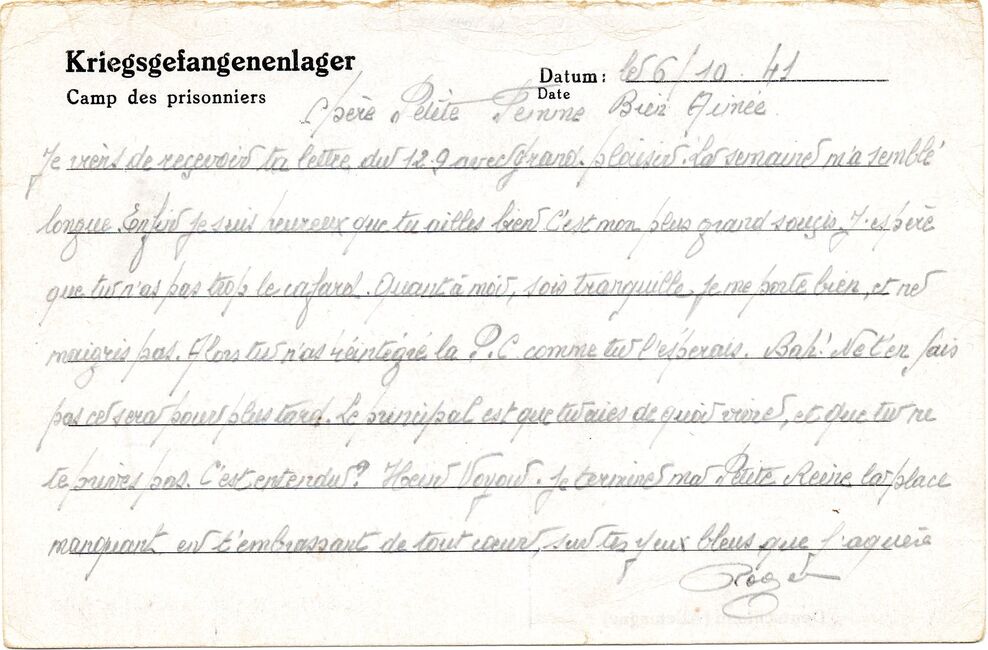 Kriegsgefangenenlager
Camp des prisonniers
Datum: le 6/10 41
Date
Chère Petite Femme Bien Aimée
Je viens de reçevoir ta lettre du 12.9 avec grand plaisir. La semaine m'a semblé
longue. Enfin je suis heureux que tu ailles bien C'est mon plus grand souçis. J'espère
que tu n'as pas trop le cafard. Quant à moi, sois tranquille je me porte bien, et ne
maigris pas. Alors tu n'as réintégré la P.C comme tu l'esperais. Bah! Ne t'en fais
pas ce sera pour plus tard. Le principal est que tu aies de quoi vivre, et que tu ne
te prives pas. C'est entendu? Hein Voyou. Je termine ma Petite Reine la place
manquant en t'embrassant de tout cœur, sur tes yeux bleus que j'
Roger